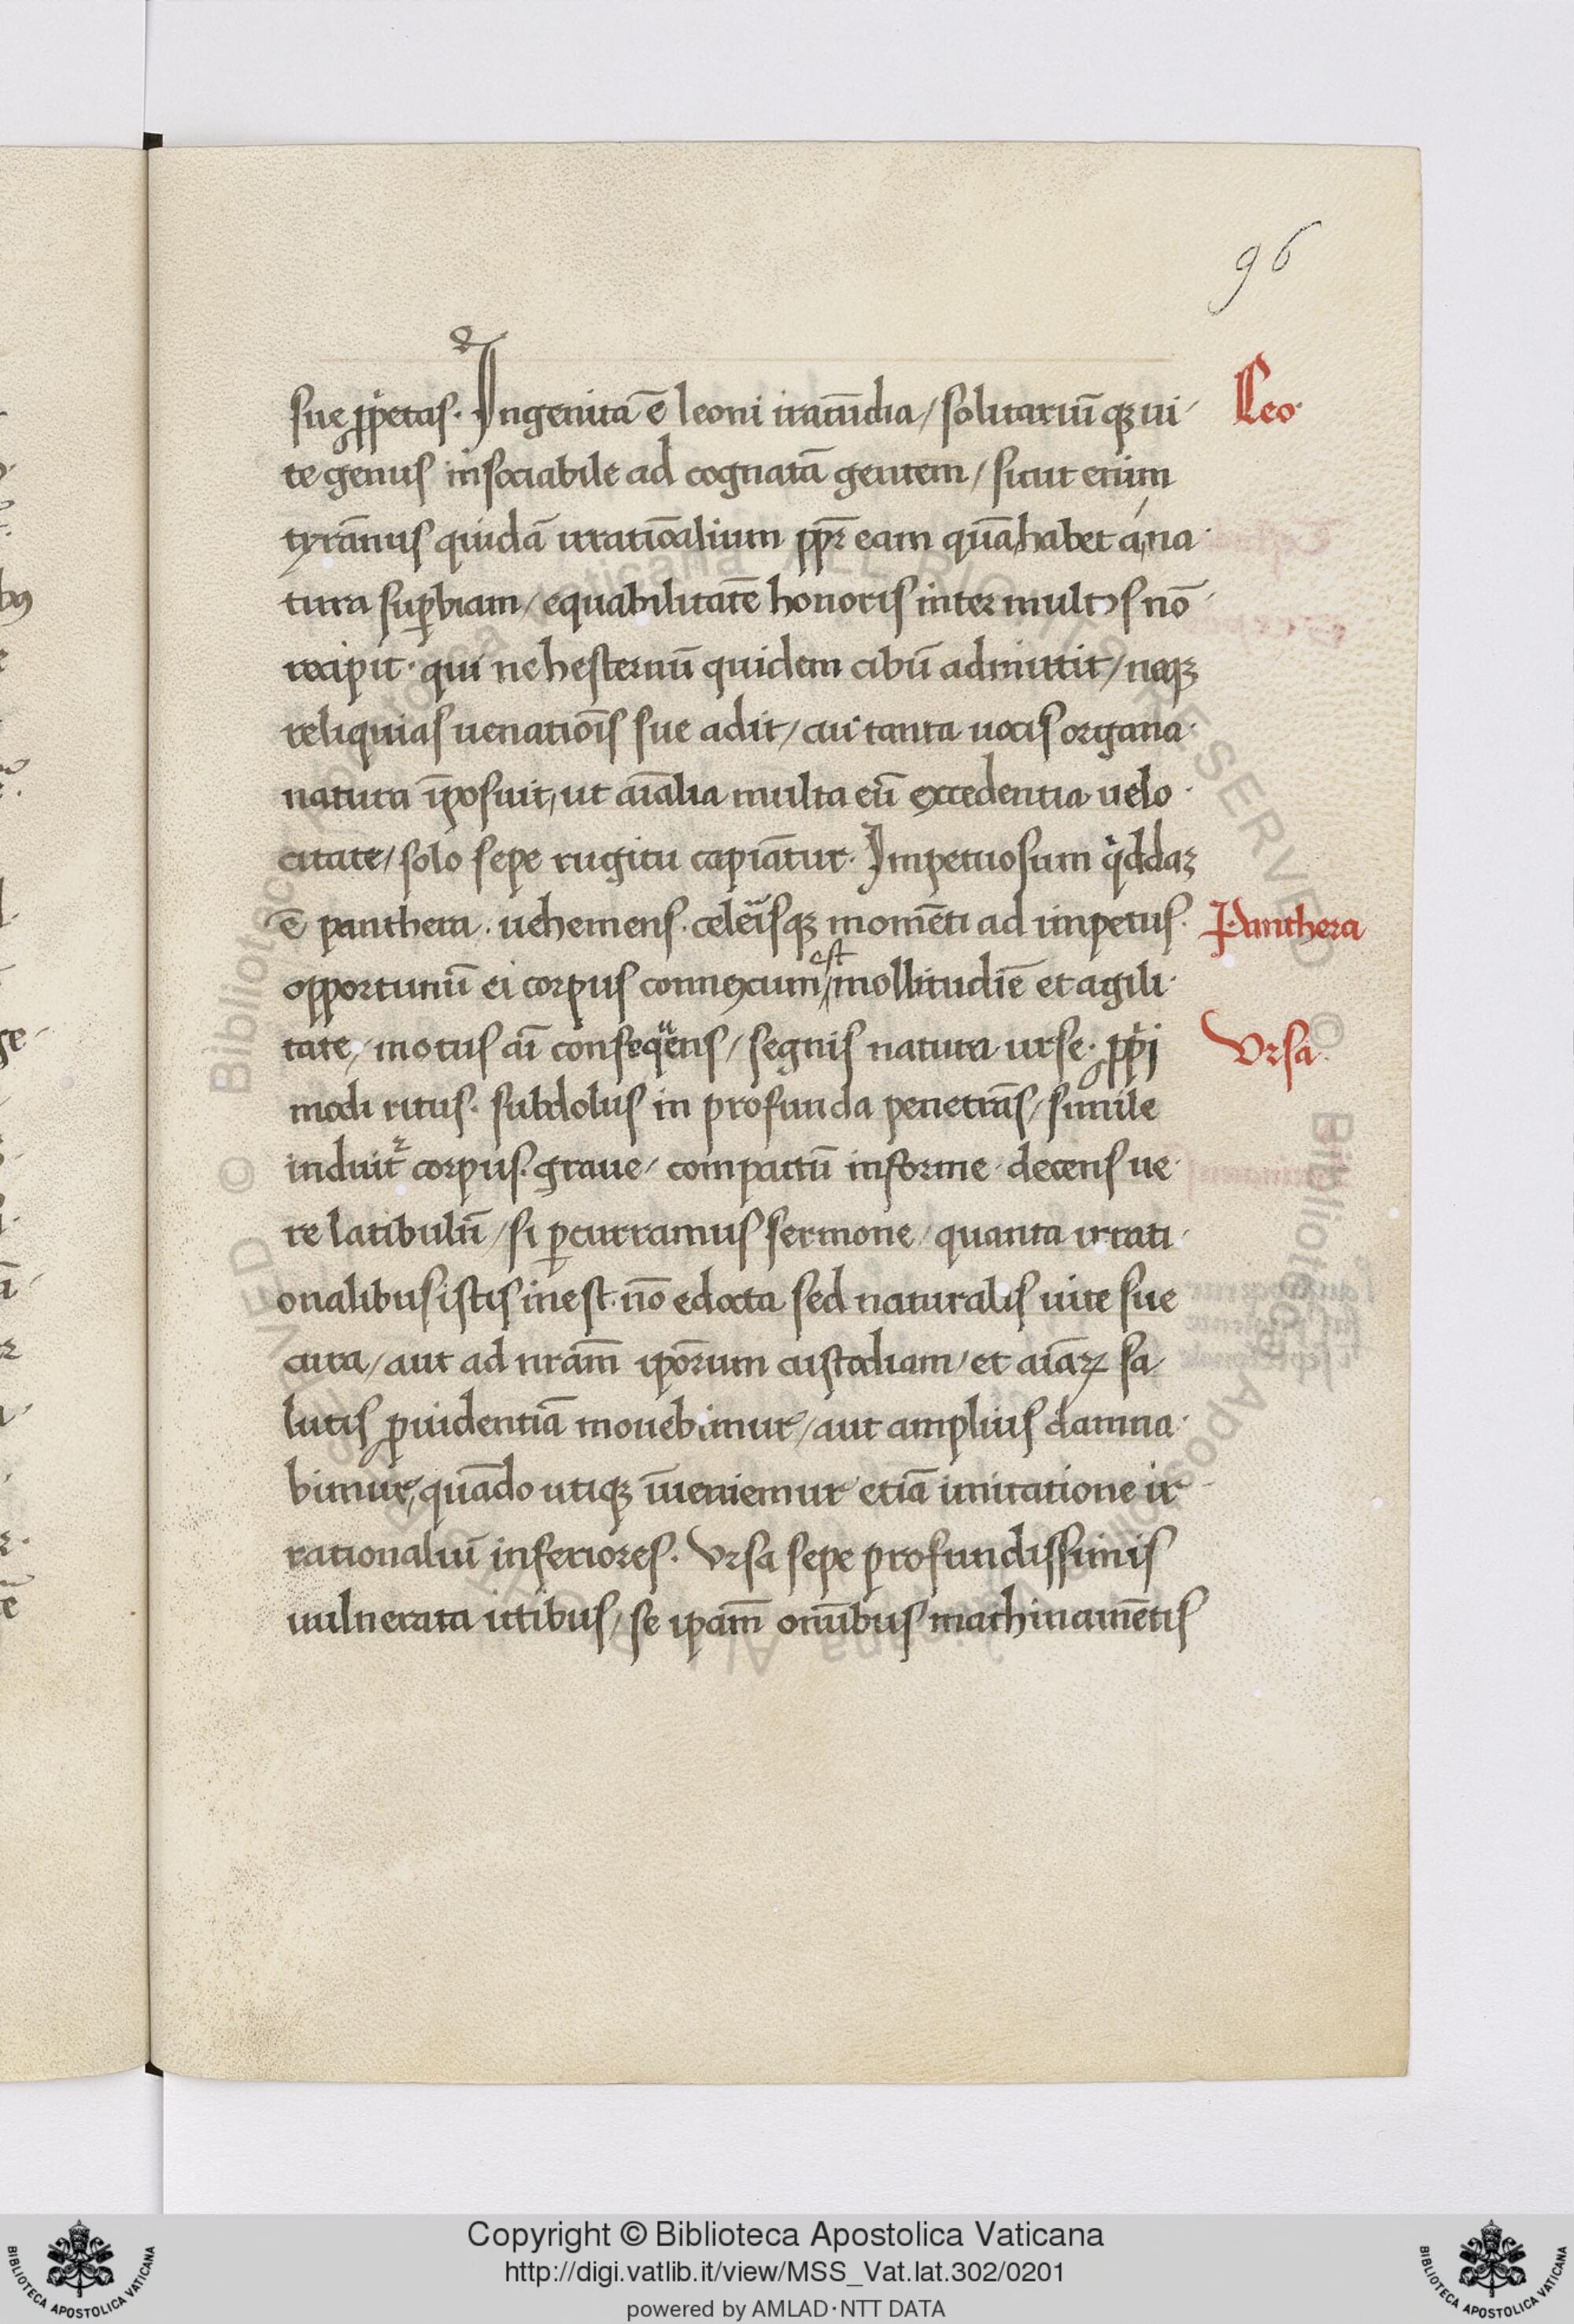 96
sue ꝓp̄etas. Ingenita ē leoni iracūdia / solitariū qꝫ ui-
Leo.
te genus insociabile ad cognatā gentem / sicut enim
tyrānus quidā irratiōalium ppꝛ̄ eam quā habet a na-
tura suꝑbiam / equabilitatē honoris inter multos nō
recipit. qui ne hesternū quidem cibū admittit / neqꝫ
reliquias uenatiōis sue adit / cui tanta uocis organa
natura īposuit, ut aīalia multa eū excedentia uelo-
citate / solo sepe rugitu capiātur. Impetuosum qͥddaꝫ
ē panthera. uehemens. celeͥsqꝫ momēti ad impetus.
Panthera
est
opportunū ei corpus connexum / mollitudiē et agili-
tate / motus aī conseqͣēns / segnis natura urse. ꝓpͥi
Ursa
modi ritus. subdolus in profunda penetrās / simile
induit᷑ corpus. graue / compactū informe. decens ue-
re latibulū / si ꝑcurramus sermone / quanta irrati-
onalibus istis inest. nō edocta sed naturalis uite sue
cura / aut ad nrām ipōrum custodiam / et aīaꝝ sa-
lutis ꝓuidentiā mouebimur / aut amplius damna-
bimur, quādo utiqꝫ īueniemur etiā imitatione ir-
rationaliū inferiores. Ursa sepe profundissimis
uulnerata ictibus / se ipam̄ omībus machinamētis
Copyright © Biblioteca Apostolica Vaticana
http://digi.vatlib.it/view/MSS_Vat.lat.302/0201
powered by AMLAD·NTT DATA
BIBLIOTECA APOSTOLICA VATICANA
BIBLIOTECA APOSTOLICA VATICANA